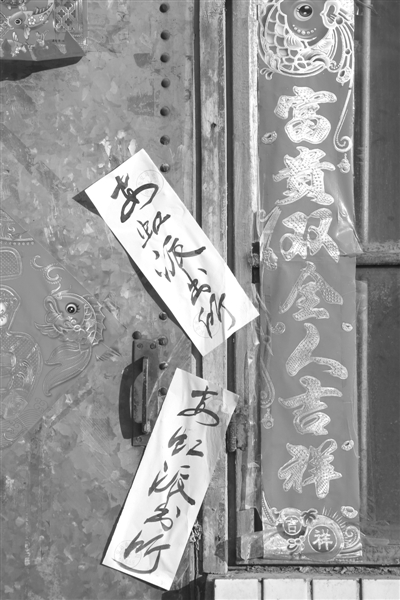 安派出所
安派出所
富贵双全人吉祥
吉祥